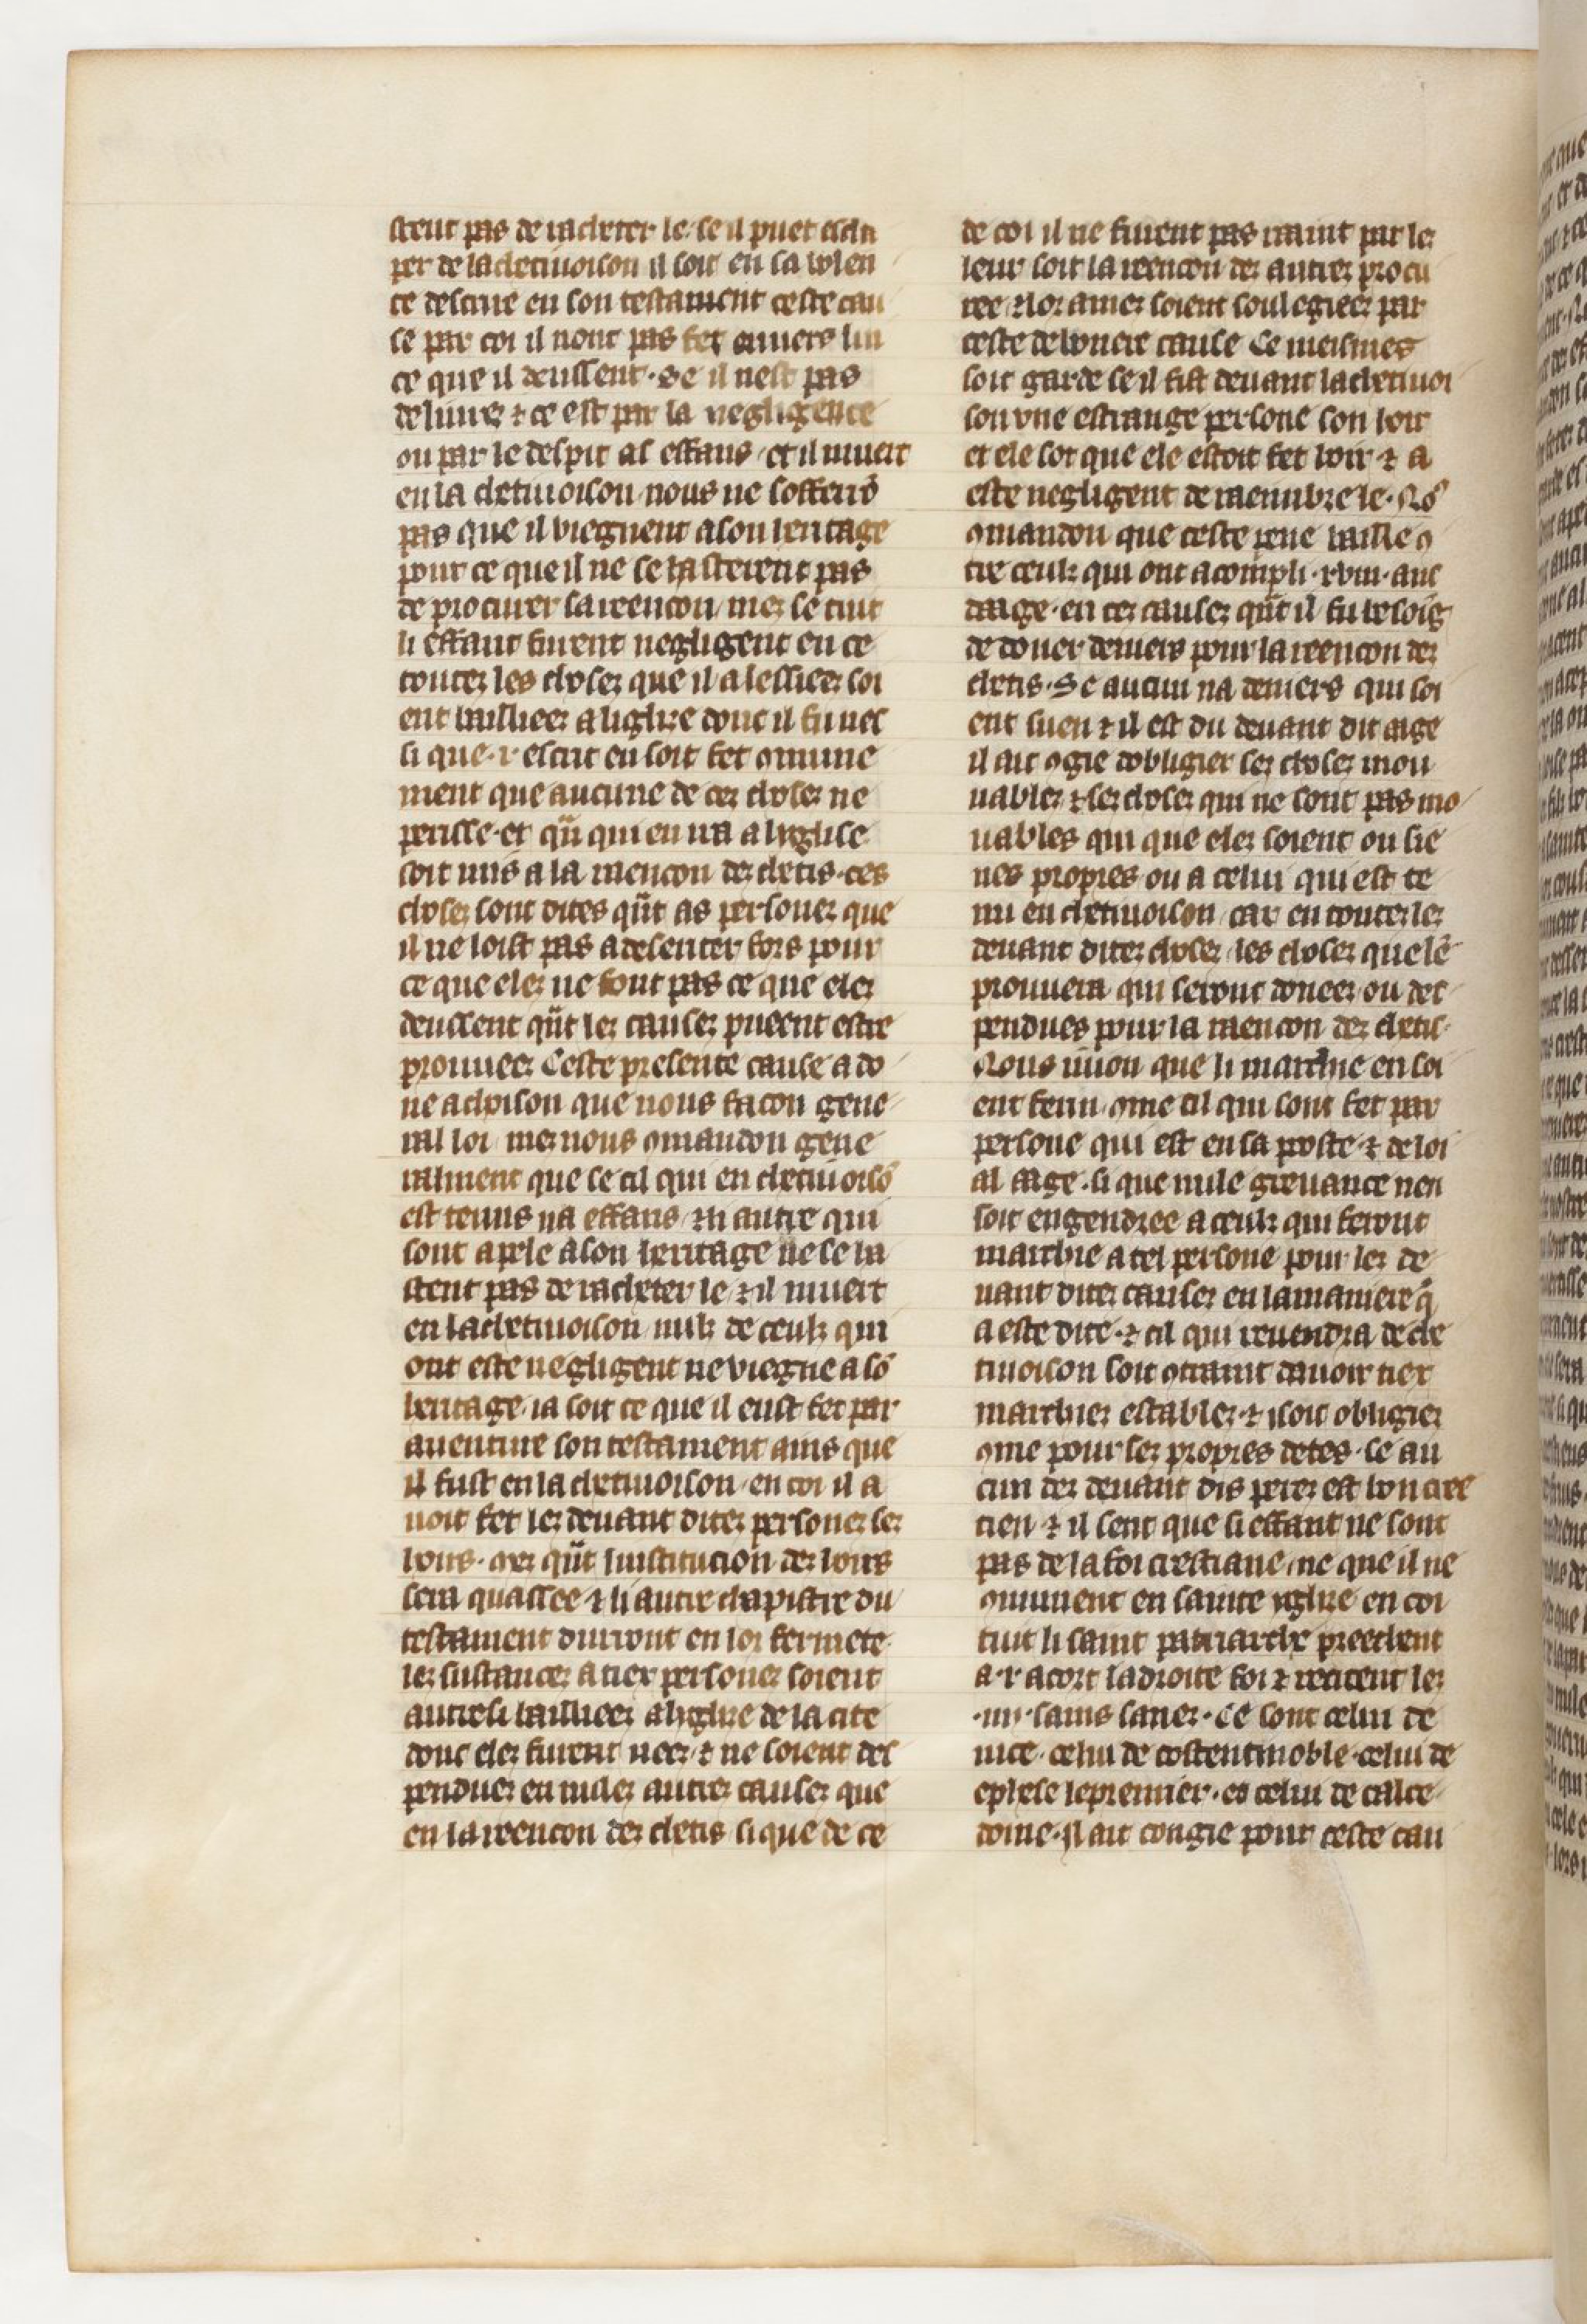 stent pas de racheter le. se il puet escha
per de la chetiuoison il soit en sa volen
te descrire en son testament ceste cau
se par coi il nont pas fet enuers lui
ce que il deussent. Se il nest pas
deliure ⁊ ce est par la negligence
ou par le despit as effans. et il muert
en la chetiuoison nous ne sofferrō
pas que il viegnent a son heritage
pour ce que il ne se hasterent pas
de procurer sa reencon. mes se tuit
li effant furent negligent en ce
toutes les choses que il a lessiees soi
ent bailliees a liglise dont il fu nes
si que .i. escrit en soit fet ꝯmune
ment que aucune de ces choses ne
perisse. et q̄n qui en ira a liglise
soit mis a la raencon des chetis. ces
choses sont dites q̄nt as persones que
il ne loist pas a deseriter fors pour
ce que eles ne font pas ce que eles
deussent q̄nt les causes pueent estre
prouuees Ceste presente cause a do
ne achoison que nous facon gene
ral loi. mes nous ꝯmandon gene
ralment que se cil qui en chetiuoisō
est tenus na effans. ⁊ li autre qui
sont apele a son heritage ne se ha
stent pas de racheter le. ⁊ il muert
en la chetiuoison nuls de ceuls qui
ont este negligent ne viegne a sō
heritage. ia soit ce que il eust fet par
auenture son testament ains que
il fust en la chetiuoison. en coi il a
uoit fet les deuant dites persones ses
hoirs. mes q̄nt linstitucion des hoirs
sera quassee ⁊ li autre chapistre du
testament durront en lor fermete.
les sustances a tiex persones soient
autresi bailliees a liglise de la cite
dont eles furent nees. ⁊ ne soient des
pendues en nules autres causes que
en la reencon des chetis. si que de ce
de coi il ne furent pas raint par les
leur soit la reencon des autres procu
ree. ⁊ lor ames soient soulegiees par
ceste debonere cause Ce meismes
soit garde se il fist deuant la chetiuoi
son vne estrange persone son hoir
et ele sot que ele estoit fet hoir ⁊ a
este negligent de raembre le. Nō
ꝯmandon que ceste peine baille ꝯ
tre ceuls qui ont acompli .xviii. ans
daage. en ces causes q̄nt il fu besoīg
de doner deniers pour la reencon des
chetis. Se aucun na deniers qui soi
ent suen ⁊ il est du deuant dit aage
il ait ꝯgie dobligier les choses mou
uables ⁊ les choses qui ne sont pas mo
uables qui que eles soient ou sie
nes propres ou a celui qui est te
nu en chetiuoison. car en toutes les
deuant dites choses. les choses que lē
prouuera qui seront donees ou des
pendues pour la raencon des chetis.
Nous iuion que li marchie en soi
ent ferm. ꝯme cil qui sont fet par
persone qui est en sa poste. ⁊ de loi
al aage. si que nule greuance nen
soit engendree a ceuls qui feront
marchie a tel persone pour les de
uant dites causes en la maniere q̄
a este dite. ⁊ cil qui reuendra de che
tiuoison soit ꝯtraint dauoir tiex
marchies estables. ⁊ i soit obligies
ꝯme pour ses propres detes. Se au
cun des deuant dis peres est bon cres
tien ⁊ il sent que si effant ne sont
pas de la foi crestiane. ne que il ne
ꝯmunient en sainte yglise en coi
tuit li saint patriarche preechent
a .i. acort la droite foi ⁊ recitent les
.iiii. sains sanes. Ce sont celui de
nice. celui de costentinoble. celui de
ephese le premier. et celui de calce
doine. Il ait congie pour ceste cau